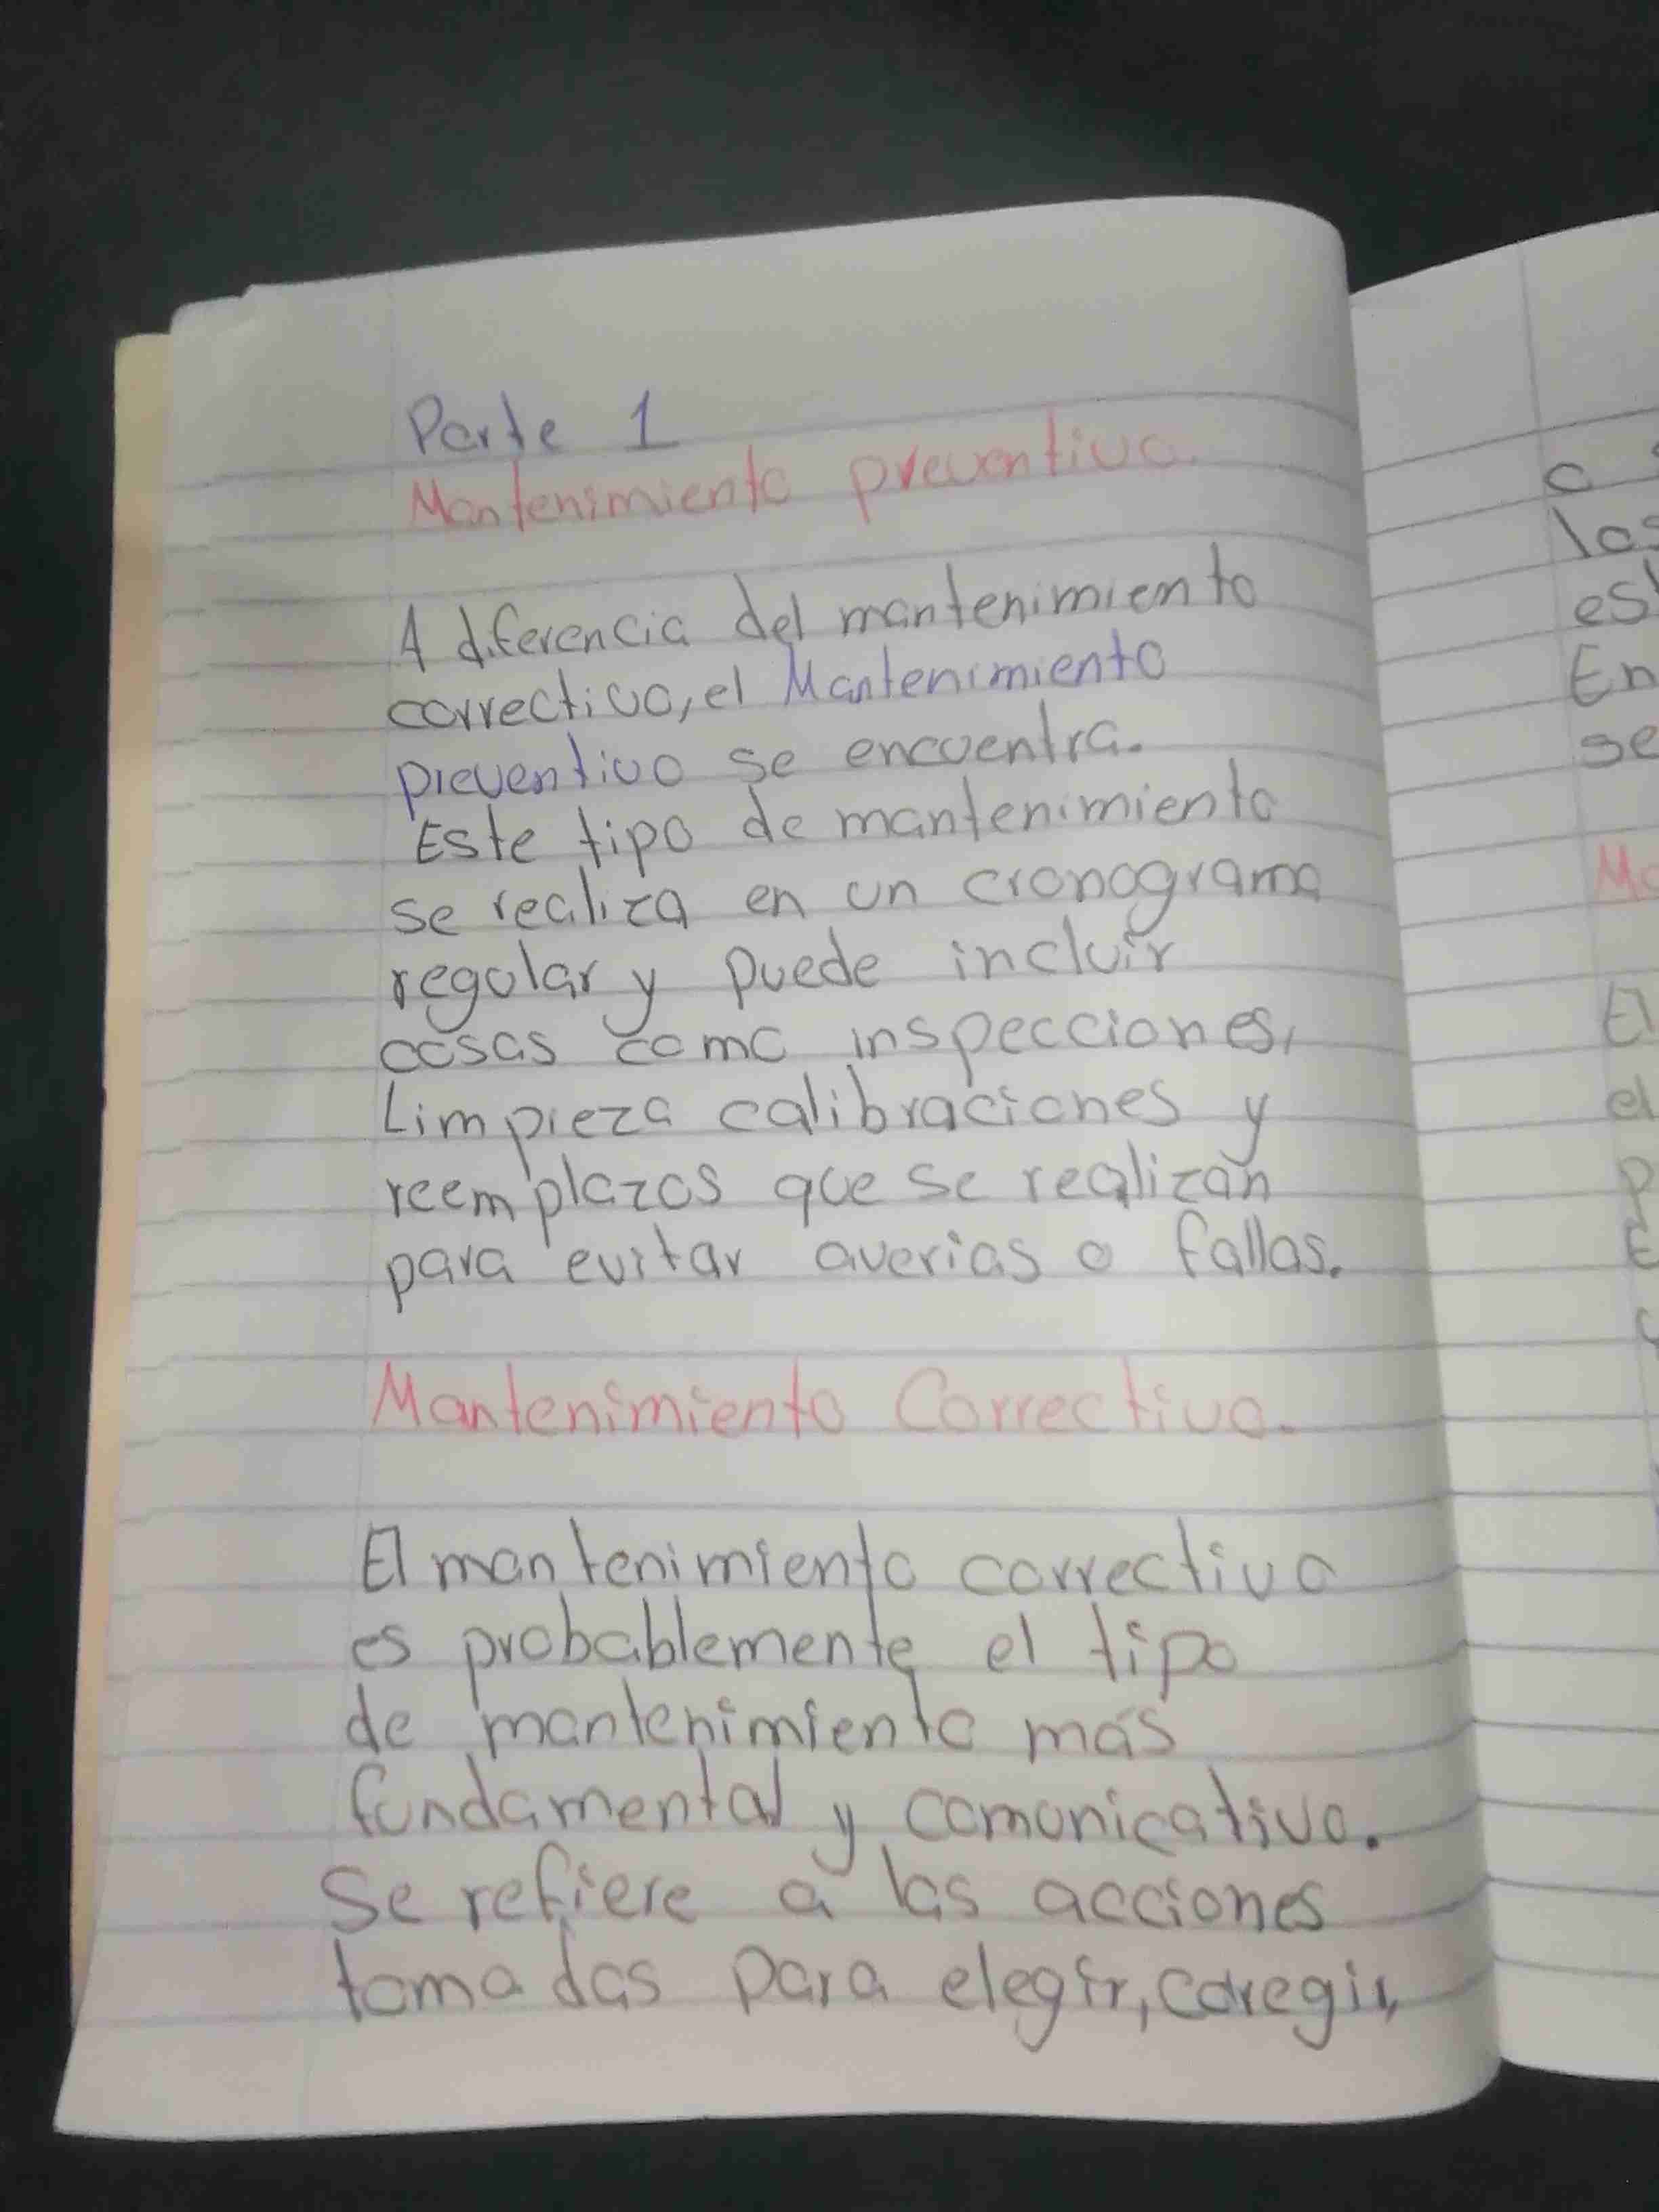 Parte 1
Mantenimiento preventivo.
A diferencia del mantenimiento
correctivo, el Mantenimiento
preventivo se encuentra.
Este tipo de mantenimiento
se realiza en un cronograma
regular y puede incluir
cosas como inspecciones,
Limpieza calibraciones y
reemplazos que se realizan
para evitar averias o fallas.
Mantenimiento Correctivo.
El mantenimiento correctivo
es probablemente el tipo
de mantenimiento más
fundamental y comunicativo.
Se refiere a las acciones
tomadas para elegir, coregir,
o
los
En
se
El